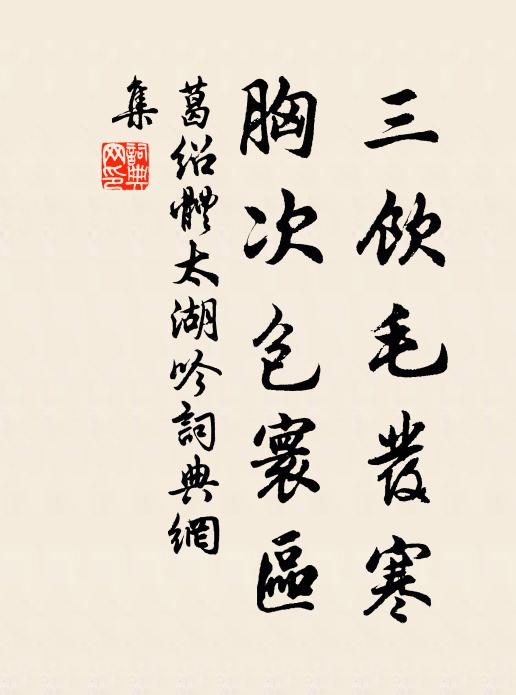 三飲毛發寒
胸次包寰區
葛紹體太湖吟詞典網
集
詞典網印